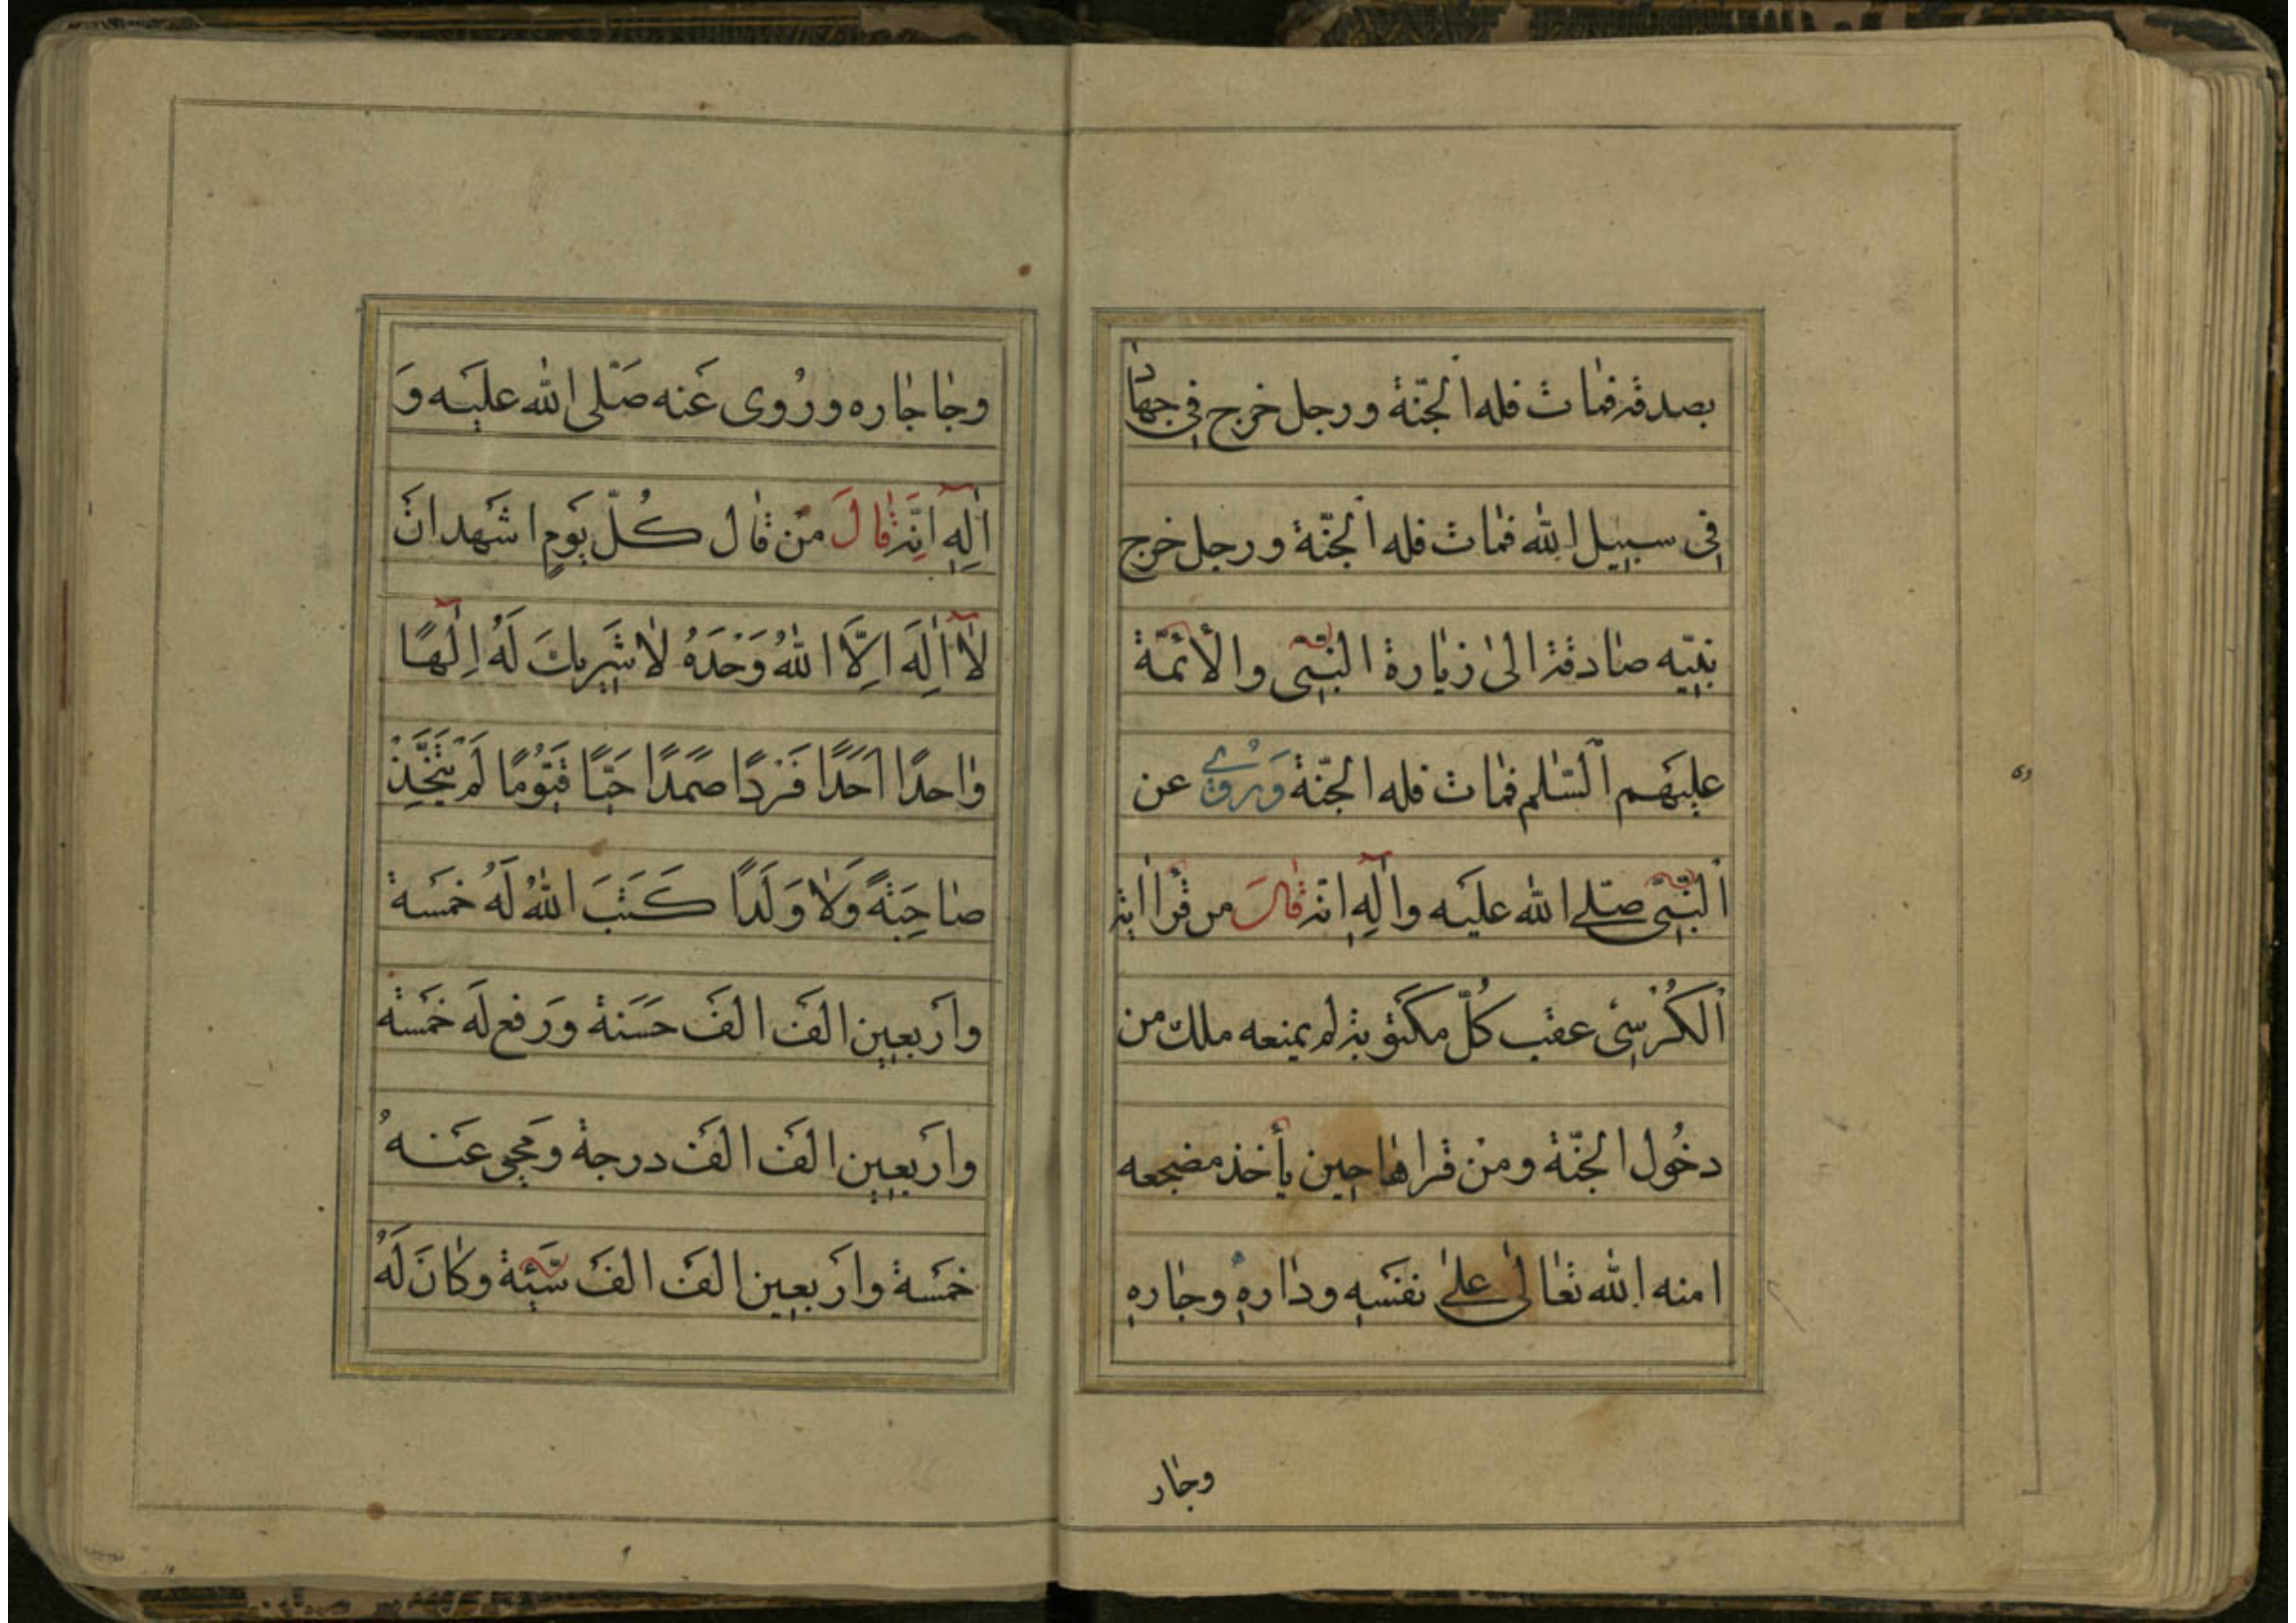 بصدقة فمات فله الجنّة ورجل خرج فى جهاد
فى سبيل الله فمات فله الجنّة ورجل خرج
بنيّه صادقة الى زيارة النبّى والأئمّة
عليهم السّلم فمات فله الجنّة وَرُوِىَ عن
النّبىّ صلّى الله عليه وآلِهِ انّه قال من قرأ اية
الكُرْسِىّ عقب كُلّ مكتوبة لم يمنعه ملك من
دخُول الجنّة ومنْ قراها حين يأخذ مضجعه
امنه الله تعالىٰ علىٰ نفسَهِ ودارهِ وجارهِ
وجار
وجاجاره ورُوى عَنه صَلّى الله عليَه وَ
آلِهِ انَّه قالَ مَن قال كُلّ يَومٍ اشَهد انَ
لٰا اِلٰهَ اِلَّا اللهُ وَحْدَهُ لٰا شَرِيكَ لَهُ اِلٰهًا
واحدًا اَحَدًا فَرْدًا صمَدًا حَيًّا قَيّوُمًا لَمْ يَتَّخِذْ
صاحِبَةً وَلٰا وَلَدًا كَتَبَ اللهُ لَهُ خمَسة
وارَبعين الفَ الفَ حَسَنة وَرَفع لَه خمَسة
وارَبعين الفَ الفَ درجة ومَحى عَنهُ
خمَسة وارَبعين الفَ الفَ سَيّئة وكانَ لَهُ